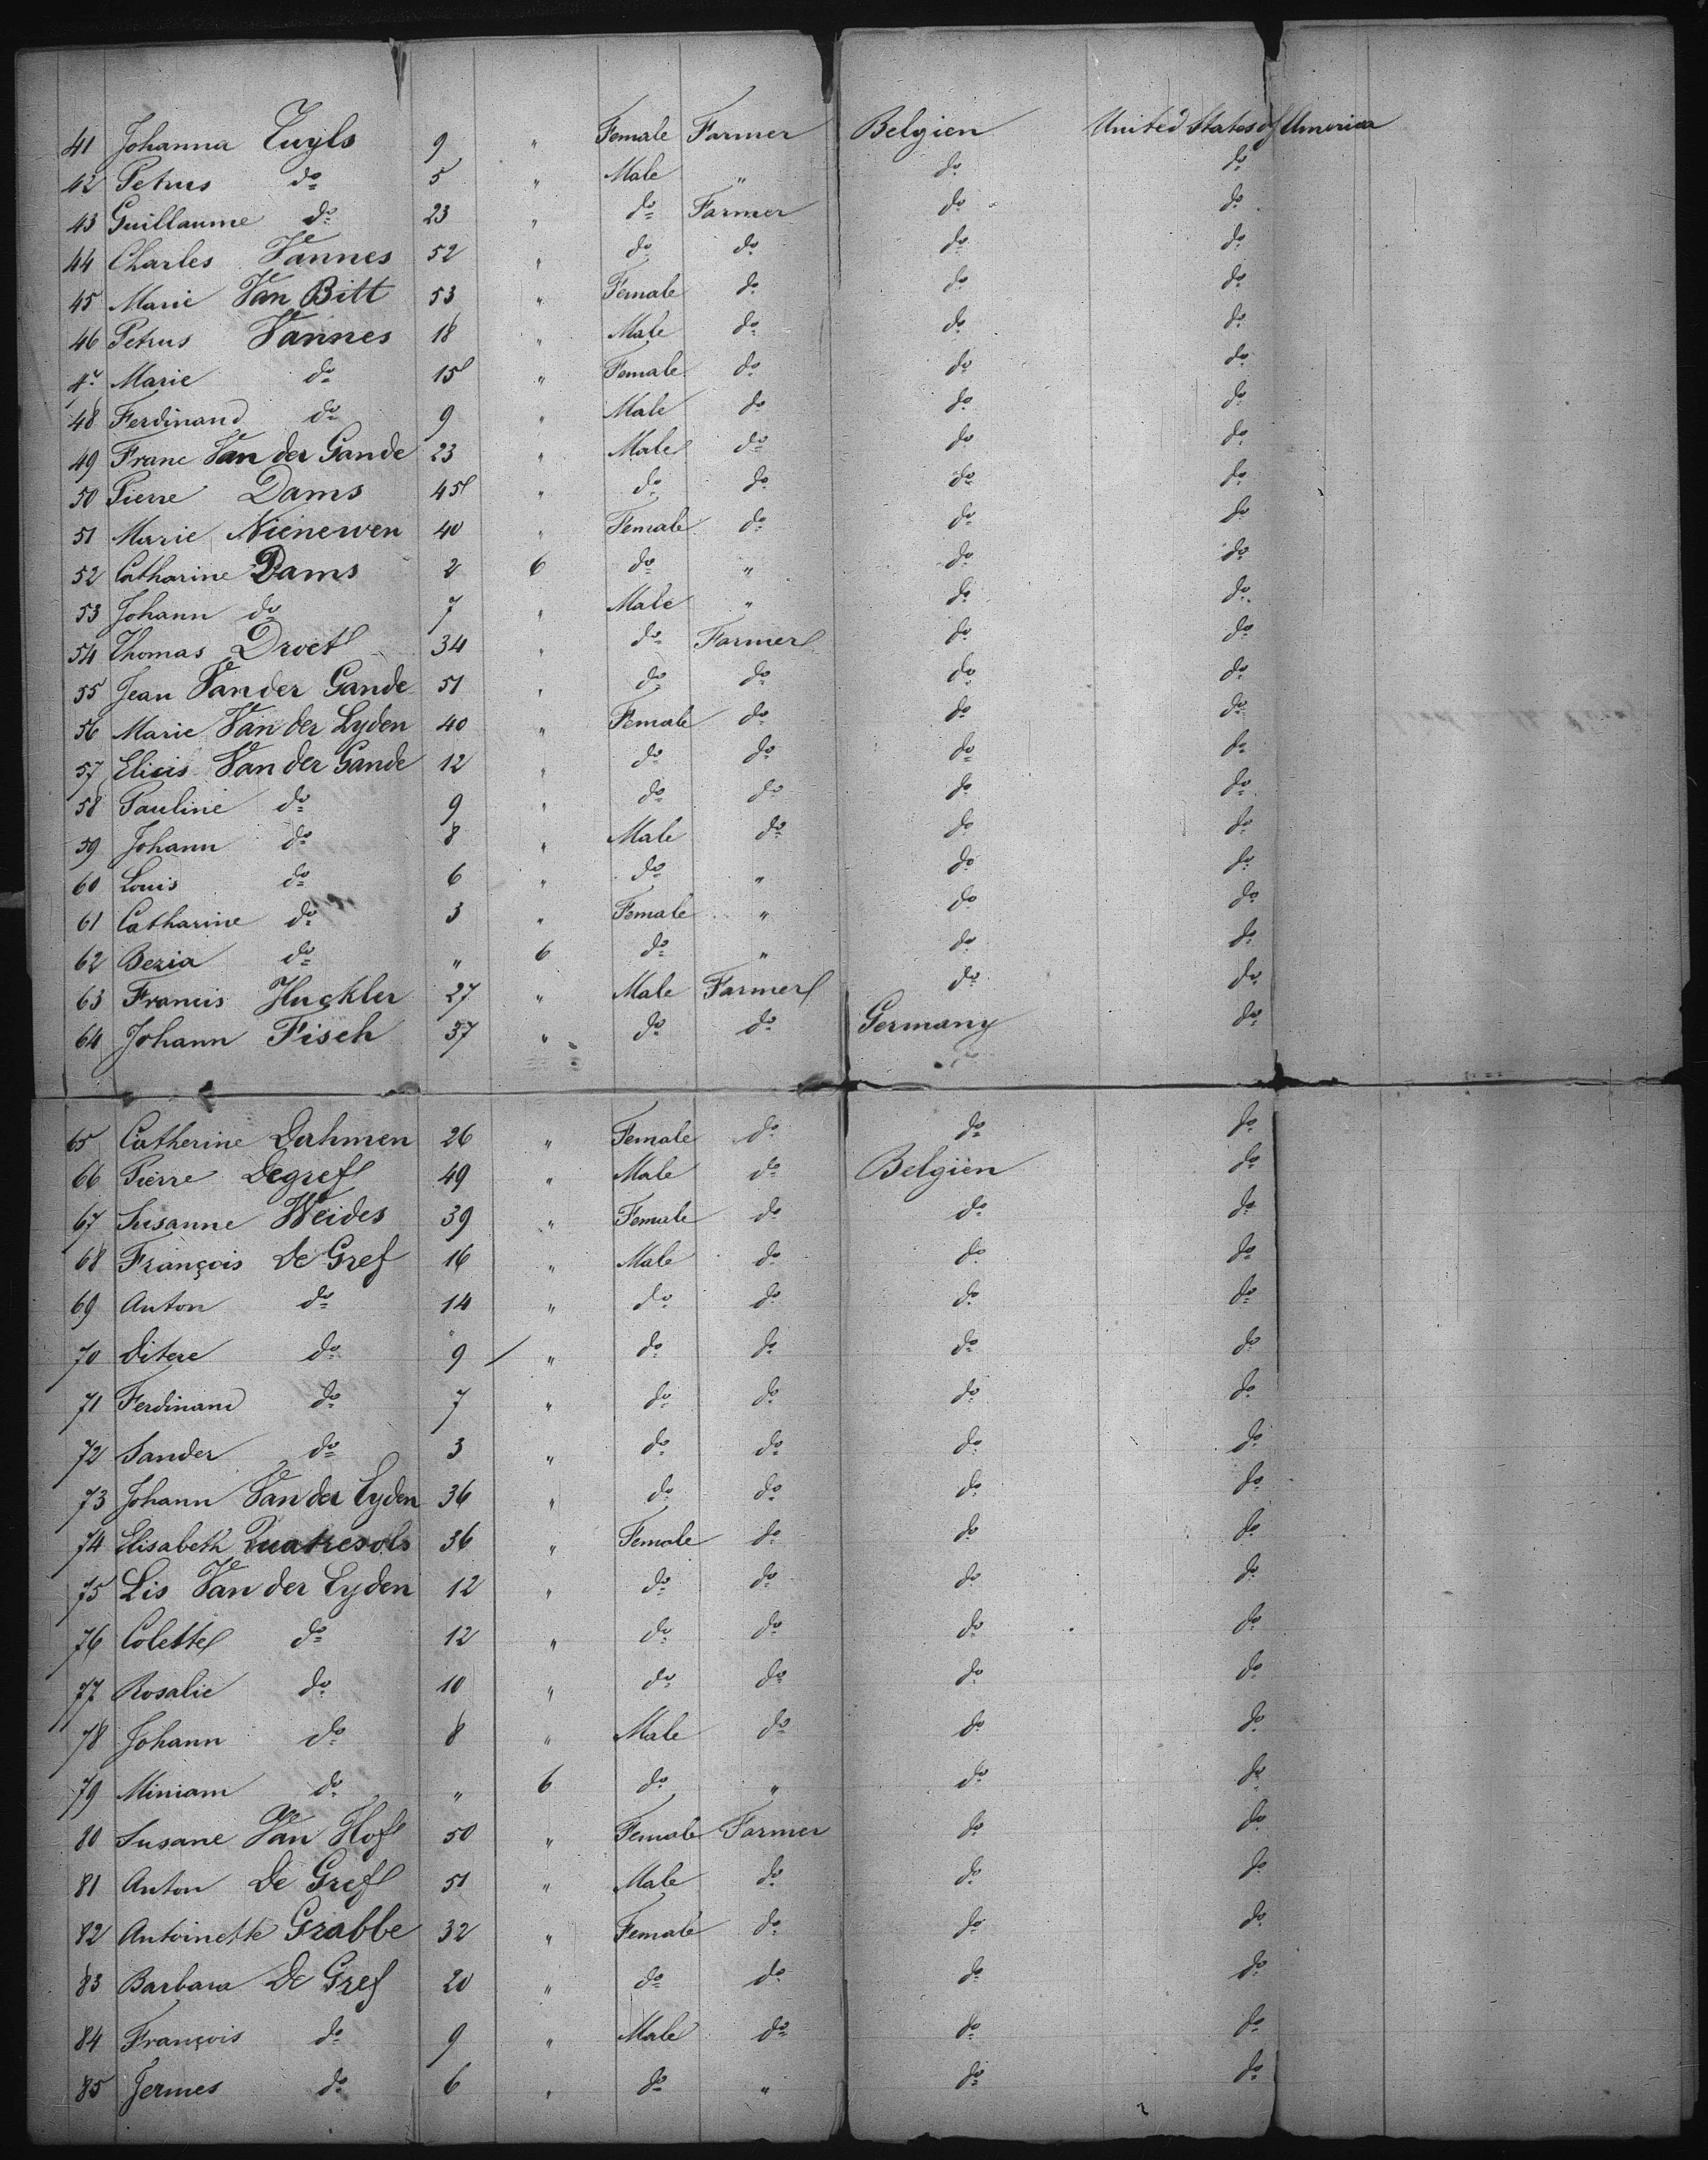 41 Johanna Tuyls 9 " Female Farmer Belgien United States of America
42 Petrus do 5 " Male " do do
43 Guillaume do 23 " do Farmer do do
44 Charles Vannes 52 " do do do do
45 Marie Van Bitt 53 " Female do do do
46 Petrus Vannes 18 " Male do do do
47 Marie do 15 " Female do do do
48 Ferdinand do 9 " Male do do do
49 Franc Van der Gande 23 " Male do do do
50 Pierre Dams 45 " do do do do
51 Marie Nienewen 40 " Female do do do
52 Catharine Dams 2 6 do " do do
53 Johann do 7 " Male " do do
54 Thomas Droet 34 " do Farmer do do
55 Jean Van der Gande 51 " do do do do
56 Marie Van der Lyden 40 " Female do do do
57 Elicis Van der Gande 12 " do do do do
58 Pauline do 9 " do do do do
59 Johann do 8 " Male do do do
60 Louis do 6 " do " do do
61 Catharine do 3 " Female " do do
62 Bezia do " 6 do " do do
63 Francis Huckler 27 " Male Farmer do do
64 Johann Fisch 37 " do do Germany do
65 Catherine Dahmen 26 " Female do do do
66 Pierre Degref 49 " Male do Belgien do
67 Susanne Weides 39 " Female do do do
68 François De Gref 16 " Male do do do
69 Anton do 14 " do do do do
70 Ditere do 9 " do do do do
71 Ferdinand do 7 " do do do do
72 Sander do 3 " do do do do
73 Johann Van der Eyden 36 " do do do do
74 Elisabeth Quatresols 36 " Female do do do
75 Lis Van der Eyden 12 " do do do do
76 Colette do 12 " do do do do
77 Rosalie do 10 " do do do do
78 Johann do 8 " Male do do do
79 Miniam do " 6 do " do do
80 Susane Van Hof 50 " Female Farmer do do
81 Anton De Gref 51 " Male do do do
82 Antoinette Grabbe 32 " Female do do do
83 Barbara De Gref 20 " do do do do
84 François do 9 " Male do do do
85 Jermes do 6 " do " do do